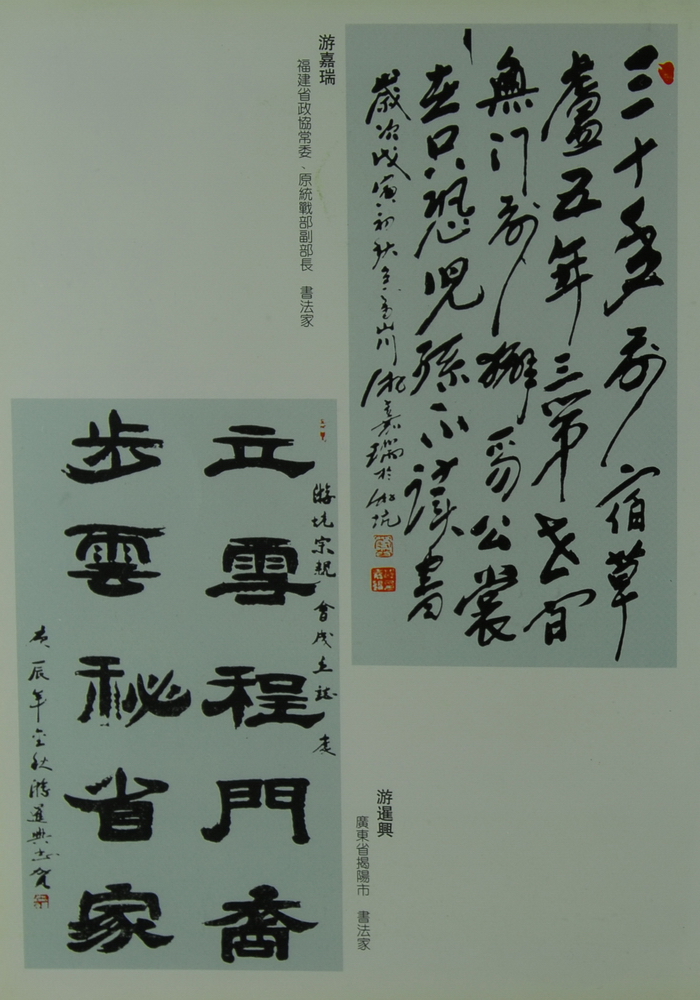 三十年前宿草
廬五年三第世間
無門前獬豸公裳
在只恐兒孫不讀書
歲次戊寅初秋 山川游嘉瑞於游坑
游嘉瑞
福建省政協常委、原統戰部副部長 書法家
游坑宗親會成立誌慶
立雪程門裔
步雲秘省家
庚辰年金秋游暹興志賀
游暹興
廣東省揭陽市 書法家